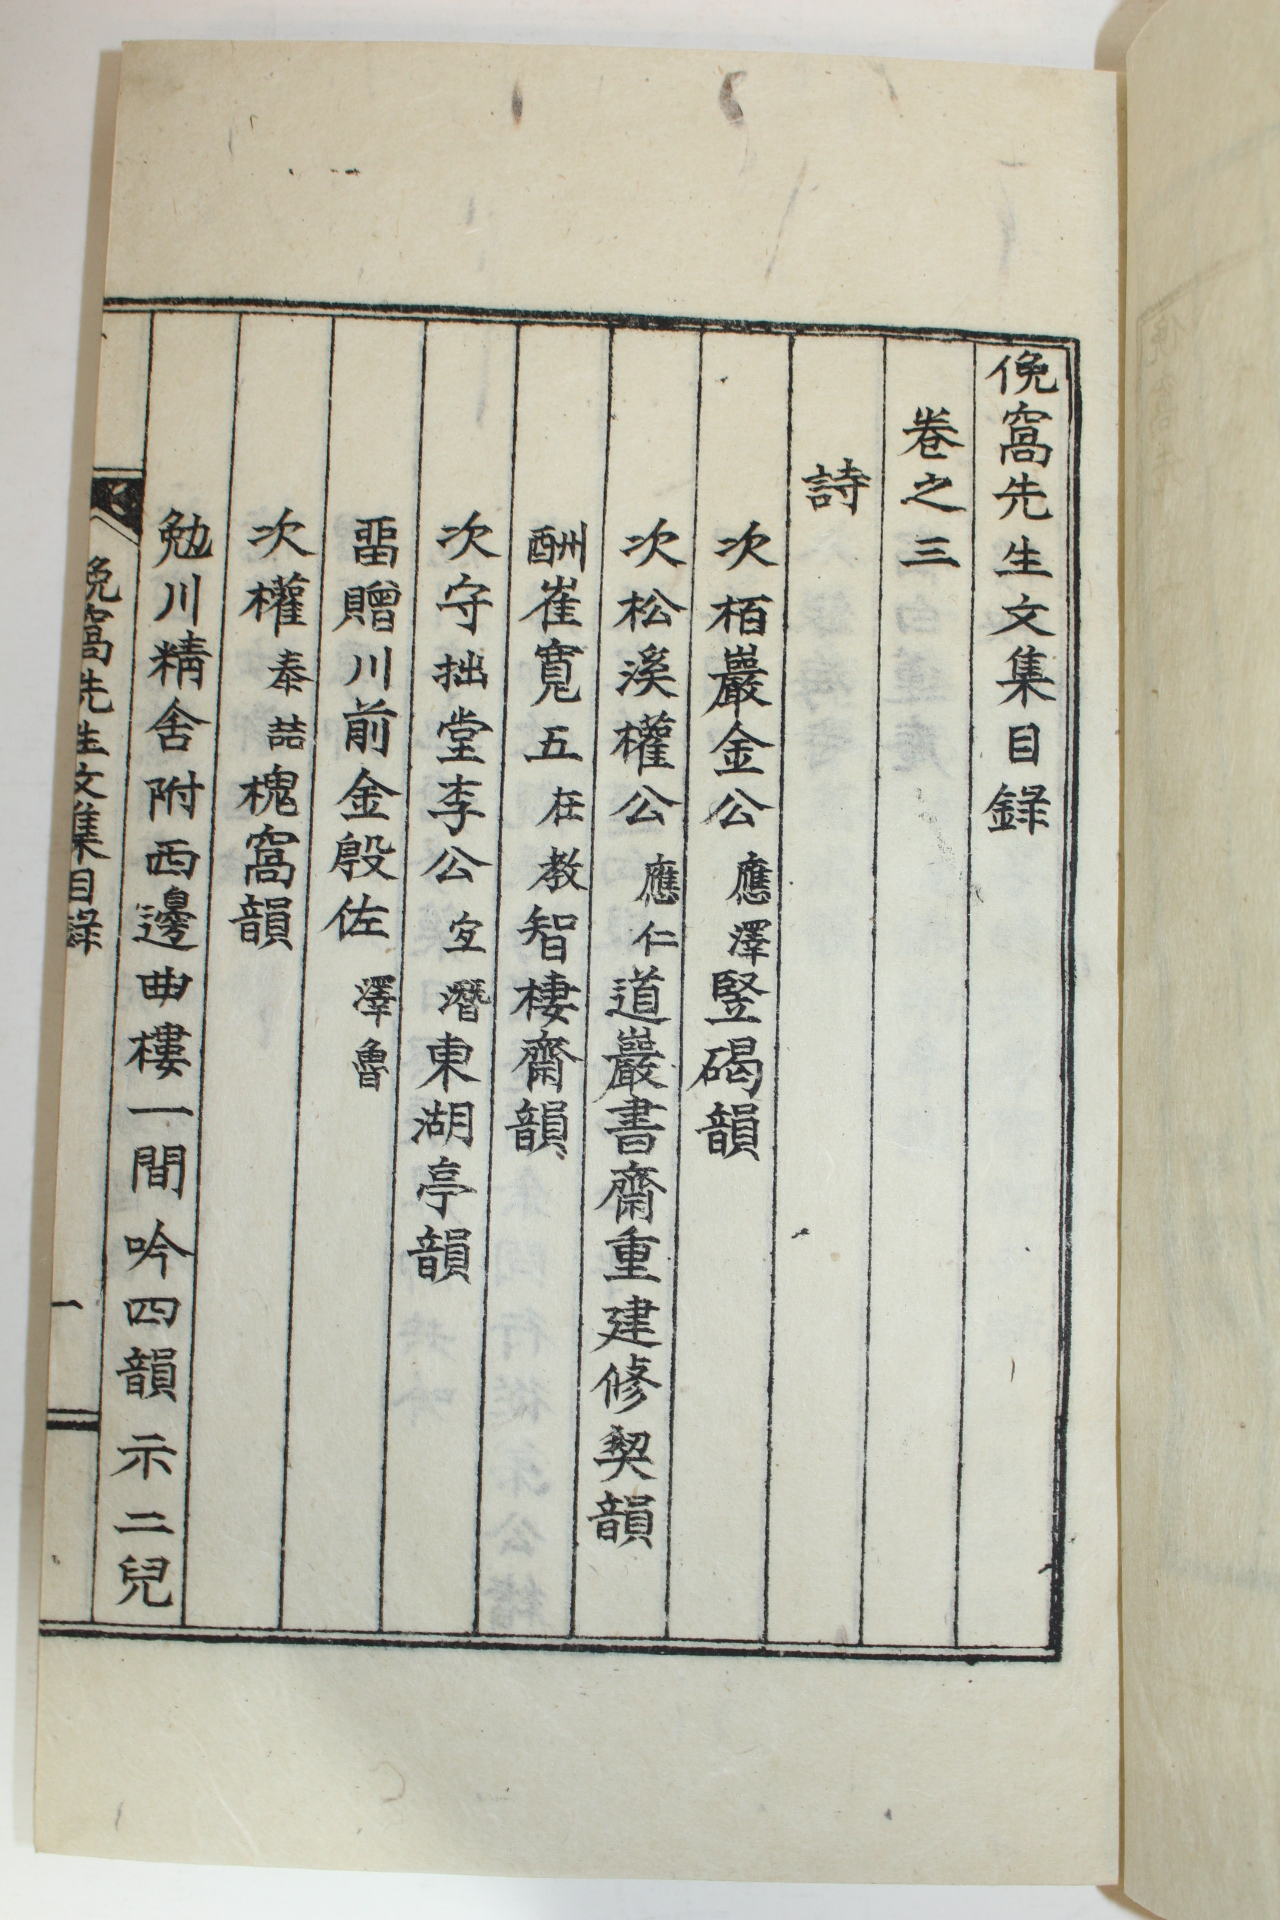 俛窩先生文集目錄
卷之三
詩
次栢巖金公應澤竪碣韻
次松溪權公應仁道巖書齋重建修契韻
酬崔寬五在教智棲齋韻
次守拙堂李公宜潛東湖亭韻
畱贈川前金殷佐澤魯
次權泰喆槐窩韻
勉川精舍附西邊曲樓一間吟四韻示二兒
俛窩先生文集目錄
一